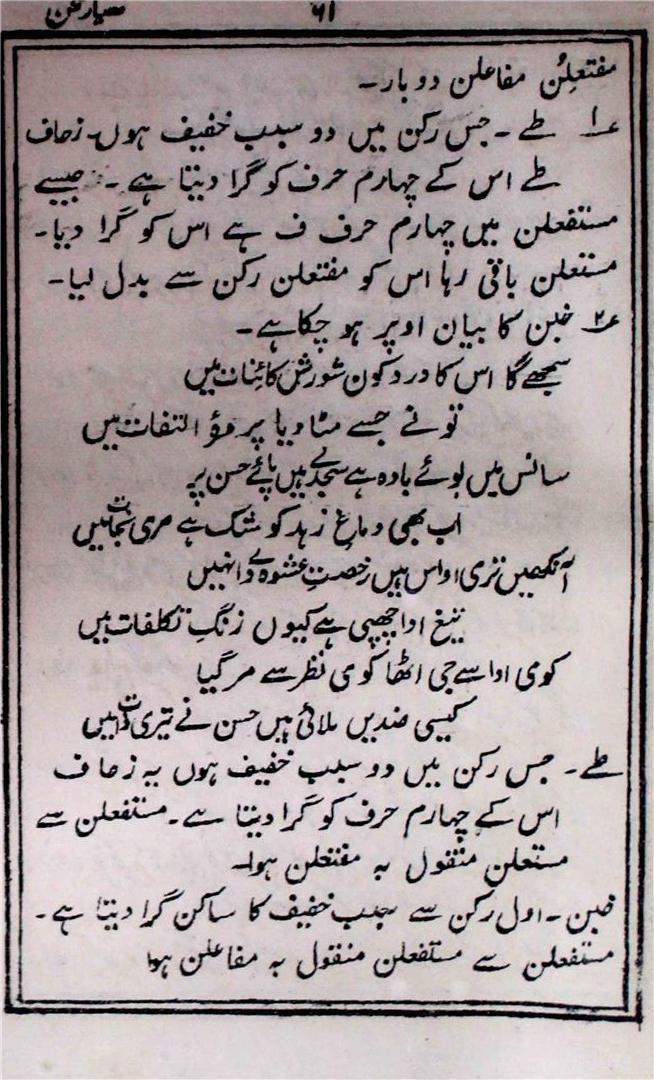 ۶۱
معیار فن
مفتعلن مفاعلن دو بار۔
۱؎ طے ۔ جس رکن میں دو سبب خفیف ہوں۔ زحاف
طے اس کے چہارم حرف کو گرا دیتا ہے ۔ جیسے
مستفعلن میں چہارم حرف ف ہے اس کو گرا دیا۔
مستعلن باقی رہا اس کو مفتعلن رکن سے بدل لیا۔
۲؎ خبن کا بیان اوپر ہو چکا ہے۔
سمجھے گا اس کا درد کون شورش کائنات میں
تو نے جسے مٹا دیا پر مؤ التفات میں
سانس میں بوئے بادہ ہے سجدے ہیں پائے حسن پر
اب بھی دماغ زہد کو شک ہے مری نجات میں
آنکھیں تری اداس ہیں رخصتِ عشوہ دا نہیں
تیغ ادا چھپی ہے کیوں زنگِ تکلفات میں
کوی ادا سے جی اٹھا کوی نظر سے مر گیا
کیسی ضدیں ملائی ہیں حسن نے تیری ذات میں
طے ۔ جس رکن میں دو سبب خفیف ہوں یہ زحاف
اس کے چہارم حرف کو گرا دیتا ہے ۔ مستفعلن سے
مستعلن منقول بہ مفتعلن ہوا۔
خبن ۔ اول رکن سے سبب خفیف کا ساکن گرا دیتا ہے ۔
مستفعلن سے متفعلن منقول بہ مفاعلن ہوا